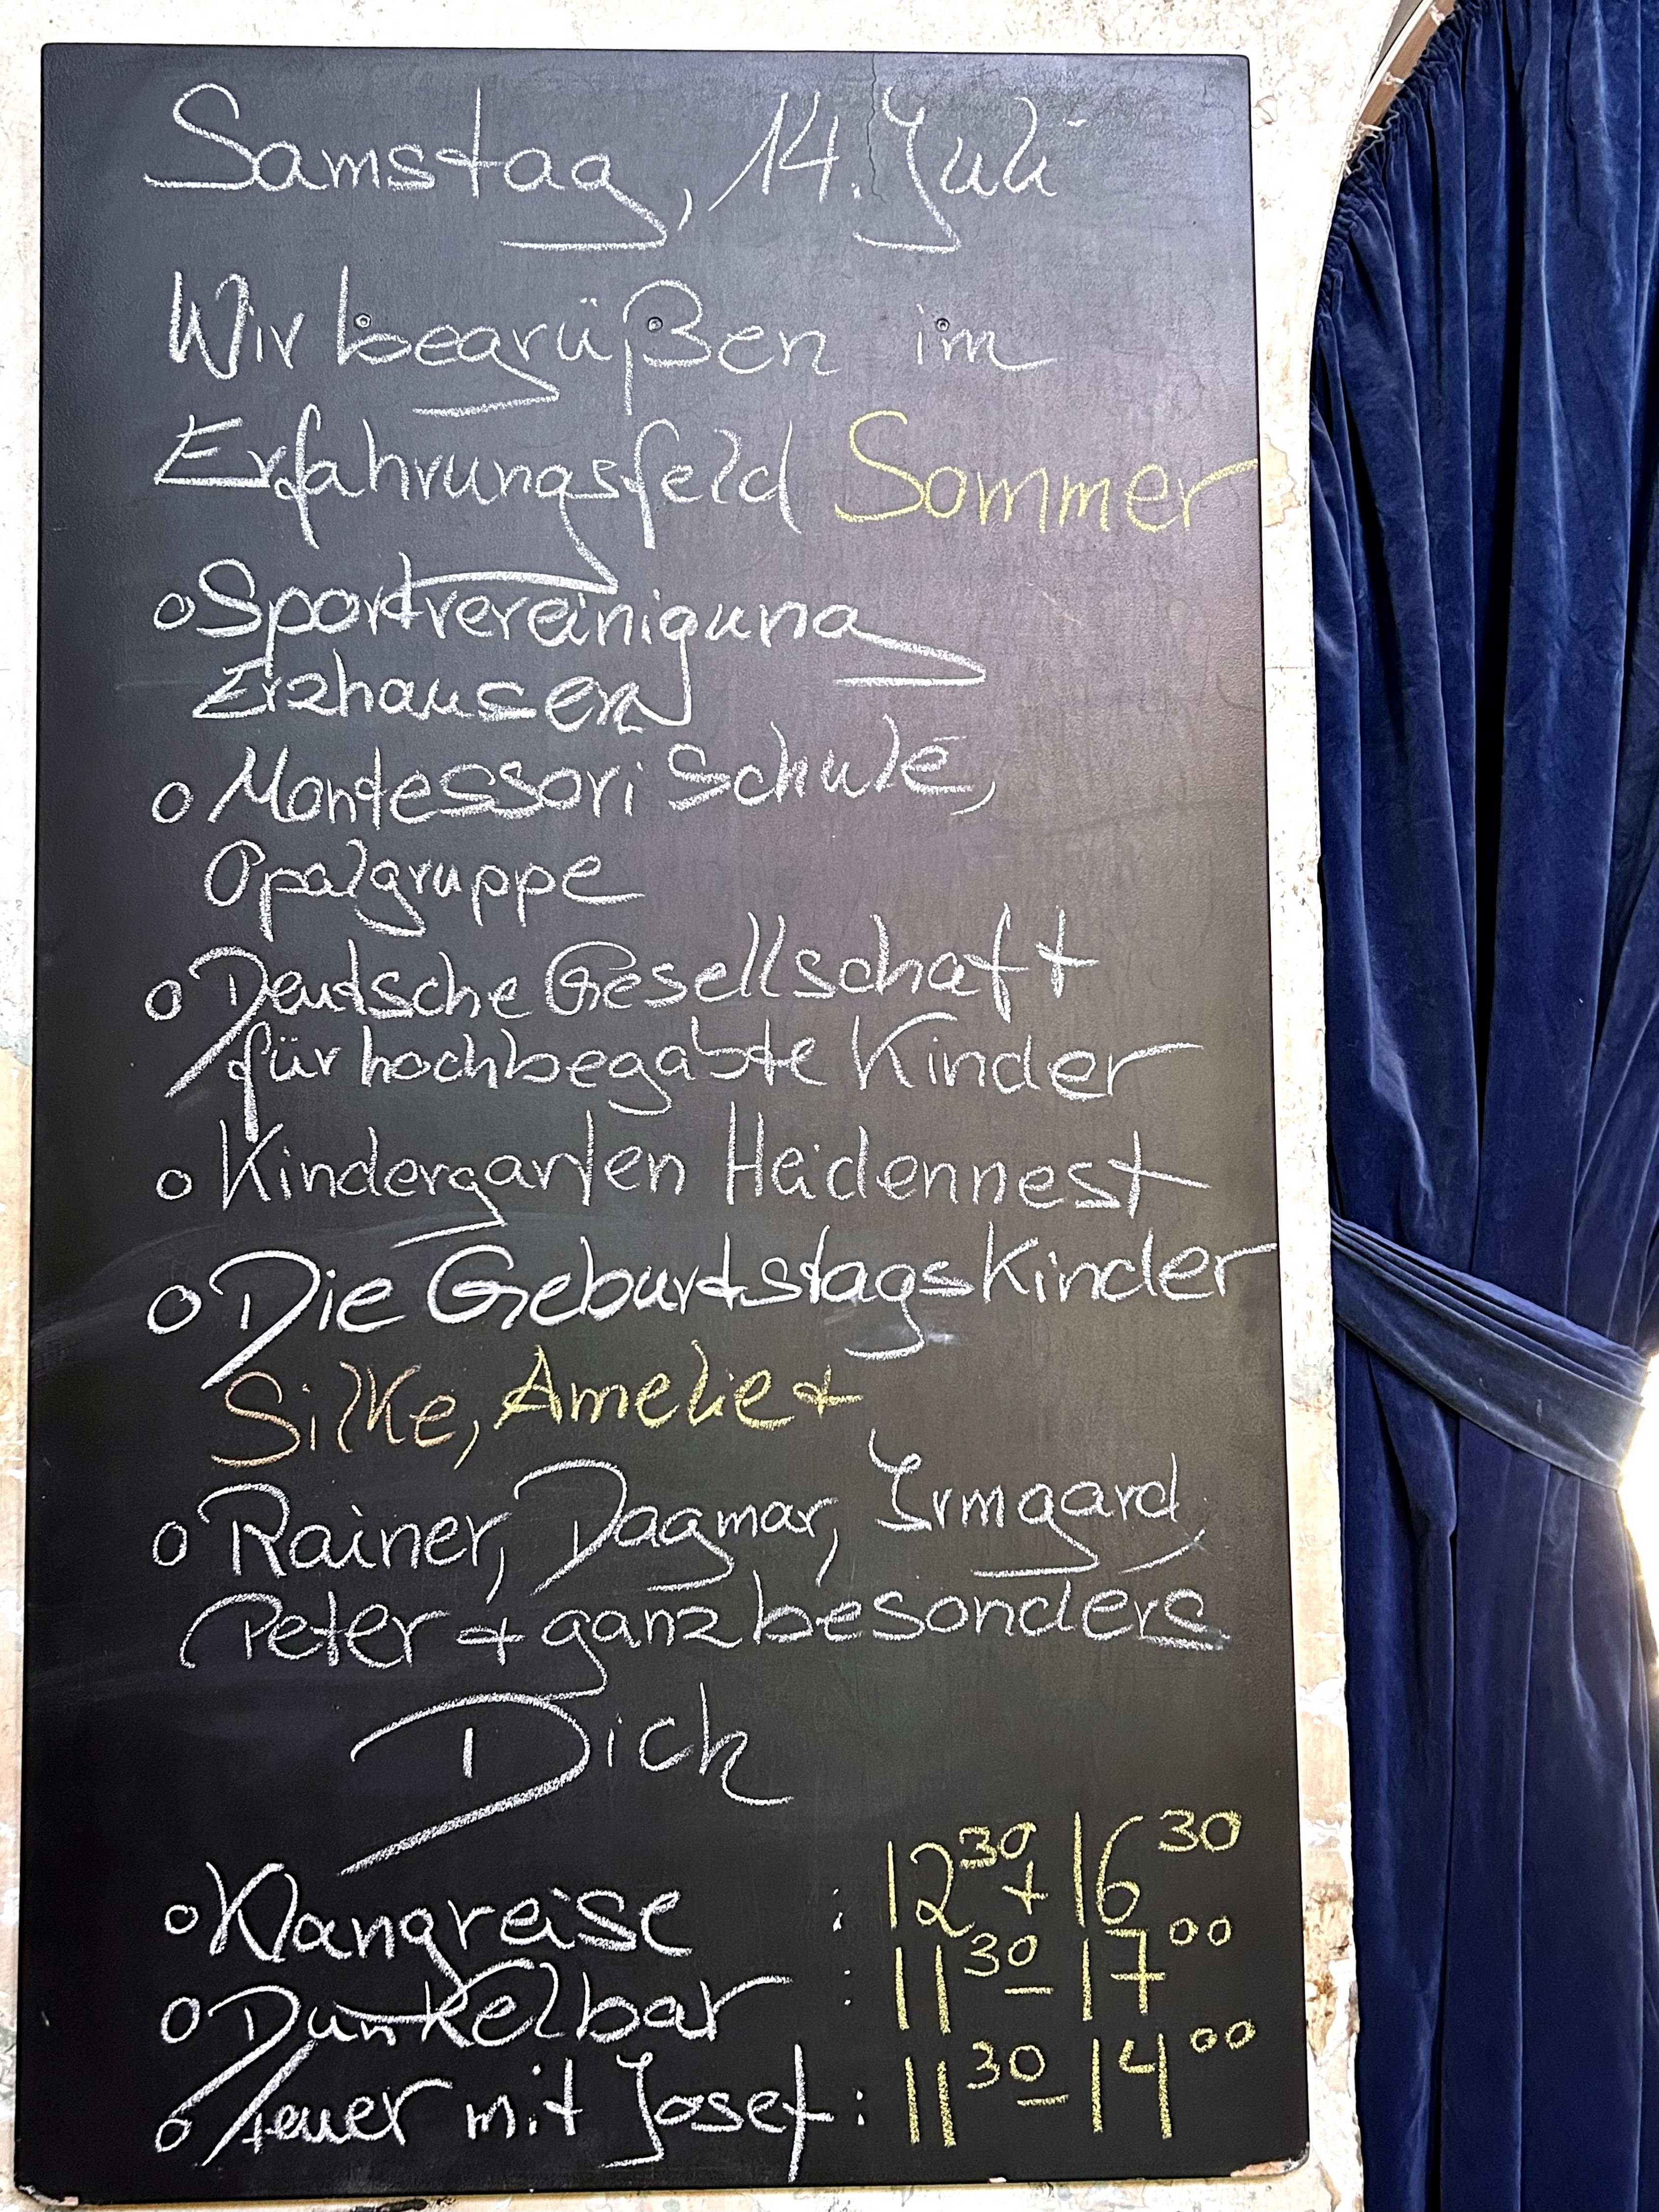 Samstag, 14. Juli
Wir begrüßen im
Erfahrungsfeld Sommer
o Sportvereinigung
Erzhausen
o Montessori Schule,
Opalgruppe
o Deutsche Gesellschaft
für hochbegabte Kinder
o Kindergarten Heidennest
o Die Geburtstagskinder
Silke, Amelie +
o Rainer, Dagmar, Irmgard,
Peter + ganz besonders
Dich
o Klangreise : 12³⁰ + 16³⁰
o Dunkelbar : 11³⁰ – 17⁰⁰
o Feuer mit Josef : 11³⁰ – 14⁰⁰